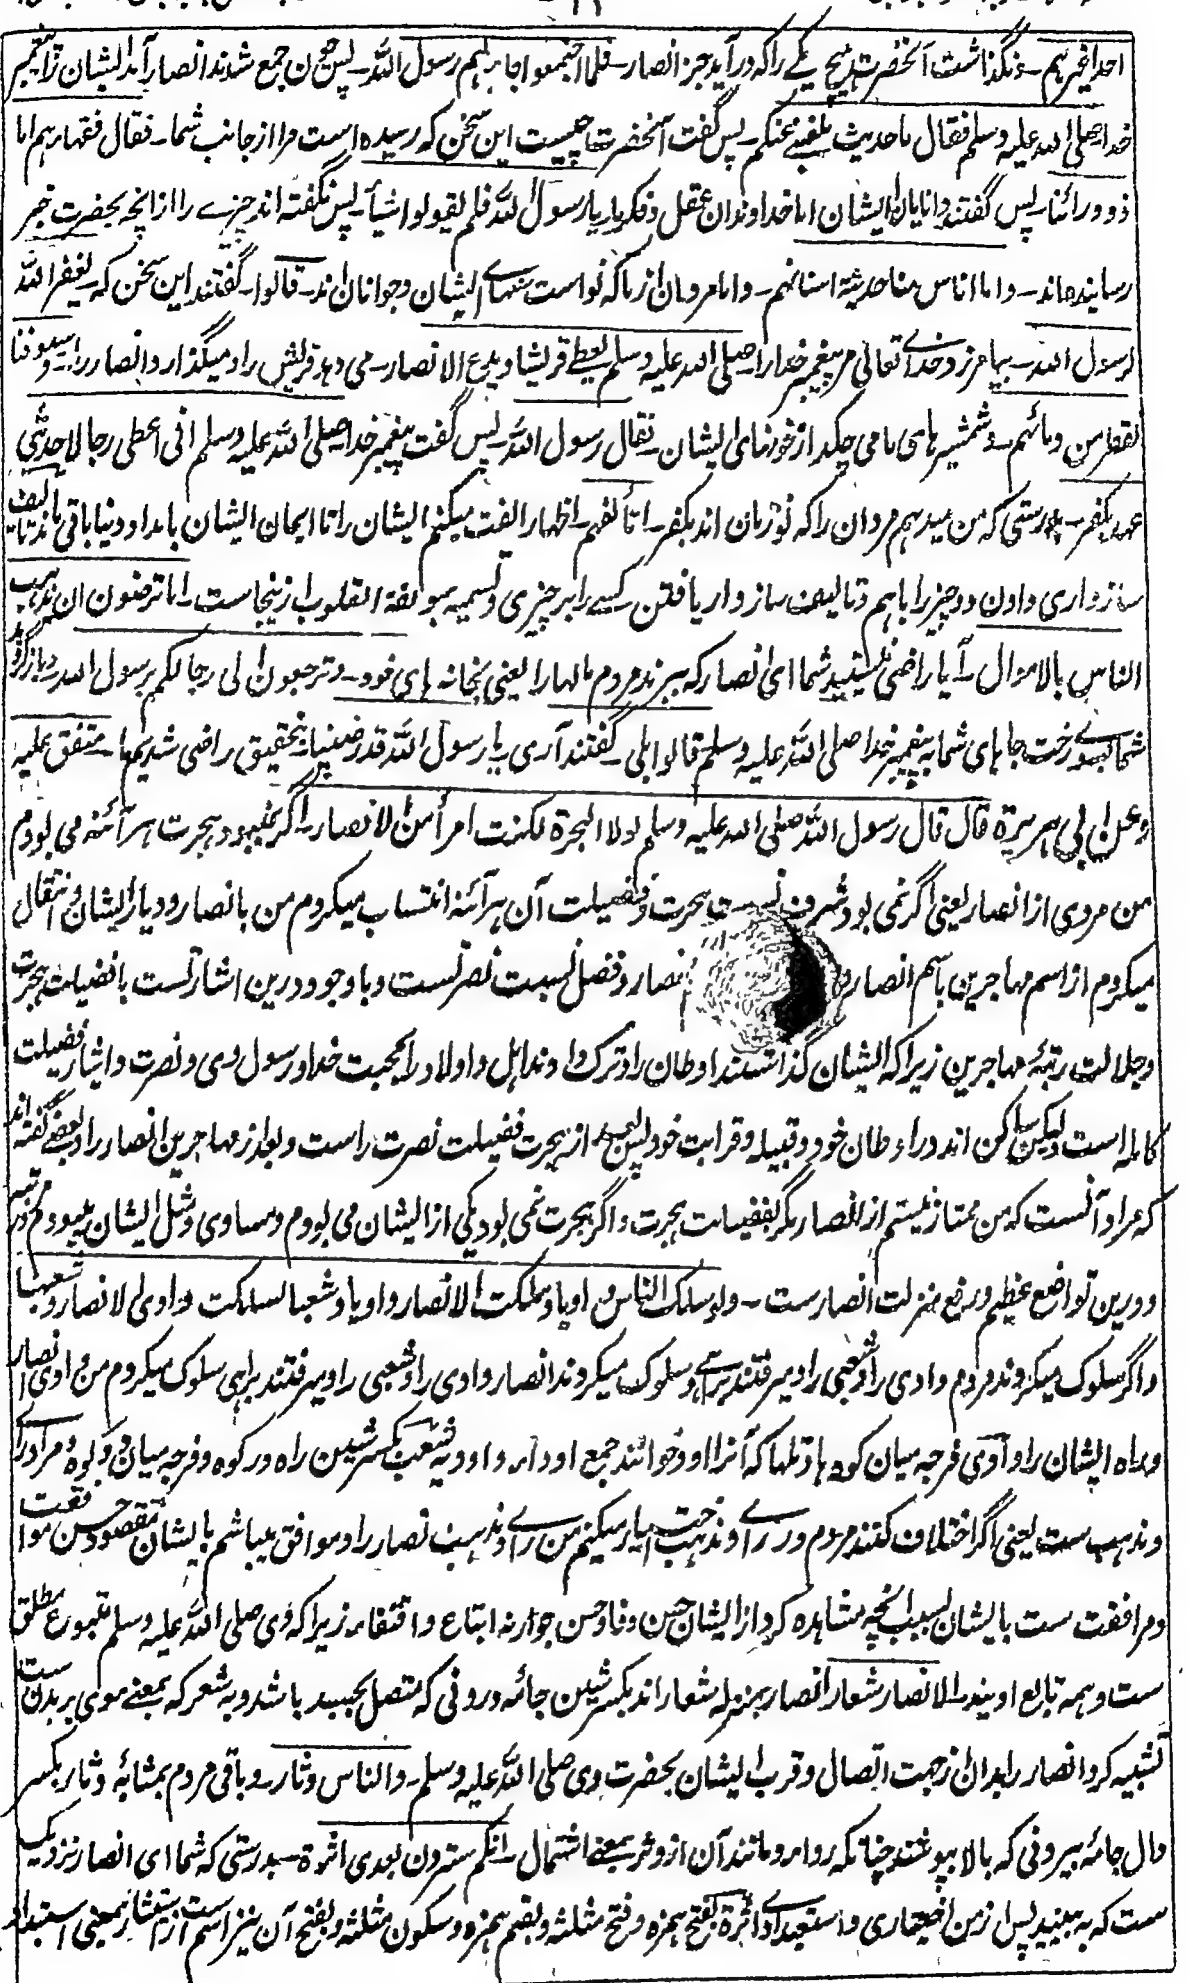 احدا غیرہم ـ ونگذاشت آنحضرت ہیچ یکے را کہ درآید جز انصار ـ فلما اجتمعوا جاءہم رسول اللہ ـ پس چون جمع شدند انصار آمد ایشان را پیغمبر
خدا صلی اللہ علیہ وسلم فقال ما حدیث بلغنی عنکم ـ پس گفت آنحضرت چیست این سخن کہ رسیدہ است مرا از جانب شما ـ فقال فقہاءہم اما
ذوو رائنا ـ پس گفتند دانایان ایشان اما خداوندان عقل وفکر ما یا رسول اللہ فلم یقولوا شیأ ـ پس نگفتہ اند چیزے را ازانچہ بحضرت خبر
رسانیدہ اند ـ واما اناس منا حدیثة اسنانہم ـ واما مردمان از ما کہ نواست سنہاے ایشان وجوانان اند ـ قالوا ـ گفتند این سخن کہ ـ یغفر اللہ
لرسول اللہ ـ بیامرزد خداے تعالی مر پیغمبر خدا را صلی اللہ علیہ وسلم یعطے قریشا ویدع الانصار ـ می دہد قریش را ومیگذارد انصار را ـ وسیوفنا
تقطر من دمائہم ـ وشمشیرہای ما می چکد از خونہای ایشان ـ فقال رسول اللہ ـ پس گفت پیغمبر خدا صلی اللہ علیہ وسلم انی اعطی رجالا حدیثی
عہد بکفر ـ بدرستی کہ من میدہم مردان را کہ نو زمان اند بکفر ـ اتألفہم ـ اظہار الفت میکنم ایشان را تا ایمان ایشان بامداد دنیا باقی ماند تالیف
سازواری دادن دو چیز را باہم وتالیف سازوار یافتن کسے را بر چیزی وتسمیہ مؤلفة القلوب ازینجاست ـ اما ترضون ان یذہب
الناس بالاموال ـ آیا راضی نیستید شما ای انصار کہ ببرند مردم مالہا را یعنی بخانہ ہای خود ـ وترجعون الی رحالکم برسول اللہ ـ وبازگردید
شما بسوے رخت جاہای شما بہ پیغمبر خدا صلی اللہ علیہ وسلم قالوا بلی ـ گفتند آری یا رسول اللہ قد رضینا ـ بتحقیق راضی شدیم ما ـ متفق علیہ
وعن ابی ہریرة قال قال رسول اللہ صلی اللہ علیہ وسلم لولا الہجرة لکنت امرأ من الانصار ـ اگر نمیبود ہجرت ہر آئنہ می بودم
من مردی از انصار یعنی اگر نمی بود شرف نسبت ہجرت وفضیلت آن ہر آئنہ انتساب میکردم من بانصار ودیار ایشان وانتقال
میکردم از اسم مہاجرین باسم انصار و انصار وفضل نسبت نصرتست وباوجود درین اشارتست بافضلیت ہجرت
وجلالت رتبۂ مہاجرین زیراکہ ایشان گذاشتند اوطان را وترک دادند اہل واولاد را بمحبت خدا ورسول وی ونصرت وایثار فضیلت
کاملہ است ولیکن ساکن اند در اوطان خود وقبیلہ وقرابت خود پس بعد از ہجرت فضیلت نصرت راست وبعد از مہاجرین انصار را وبعضے گفتہ اند
کہ مراد آنست کہ من ممتاز نیستم از انصار مگر بفضیلت ہجرت واگر ہجرت نمی بود یکی از ایشان می بودم ومساوی ومثل ایشان میبودم در مرتبہ
ودرین تواضع عظیم ورفع منزلت انصارست ـ ولو سلک الناس وادیا وسلکت الانصار وادیا وشعبا لسلکت وادی الانصار وشعبہا
واگر سلوک میکردند مردم وادی را وشعبی را ومیرفتند براہے وسلوک میکردند انصار وادی را وشعبی را ومیرفتند براہی سلوک میکردم من وادی انصار
وراہ ایشان را وادی فرجہ میان کوہ ہا وتلہا کہ آنرا رود خوانند جمع اوداء واودیہ وشعب بکسر شین راہ در کوہ وفرجہ میان دو کوہ ومراد رائے
ومذہب ست یعنی اگر اختلاف کنند مردم در رائے ومذہب اختیار میکنم من رائے ومذہب انصار را وموافق میباشم بایشان مقصود حسن موافقت
ومرافقت ست بایشان بسبب آنچہ مشاہدہ کرد از ایشان حسن وفا وحسن جوار نہ اتباع واقتفاء زیراکہ وی صلی اللہ علیہ وسلم متبوع مطلق
ست وہمہ تابع اویند الانصار شعار انصار بمنزلہ شعار اند بکسر شین جامۂ درونی کہ متصل بجسد باشد وبہ شعر کہ بمعنے موی بر بدن ست
تشبیہ کرد انصار را بدان از جہت اتصال وقرب ایشان بحضرت وی صلی اللہ علیہ وسلم ـ والناس دثار ـ وباقی مردم بمثابۂ دثار بکسر
دال جامۂ بیرونی کہ بالا پوشند چنانکہ رداء ومانند آن از دثر بمعنے اشتمال ـ انکم سترون بعدی اثرة ـ بدرستی کہ شما ای انصار نزدیک
ست کہ بہ بینید پس از من اختیاری واستبدادے اثرة بفتح ہمزہ وفتح مثلثہ وبضم ہمزہ وسکون مثلثہ وبفتح آن نیز اسم ست از استیثار بمعنی استبداد